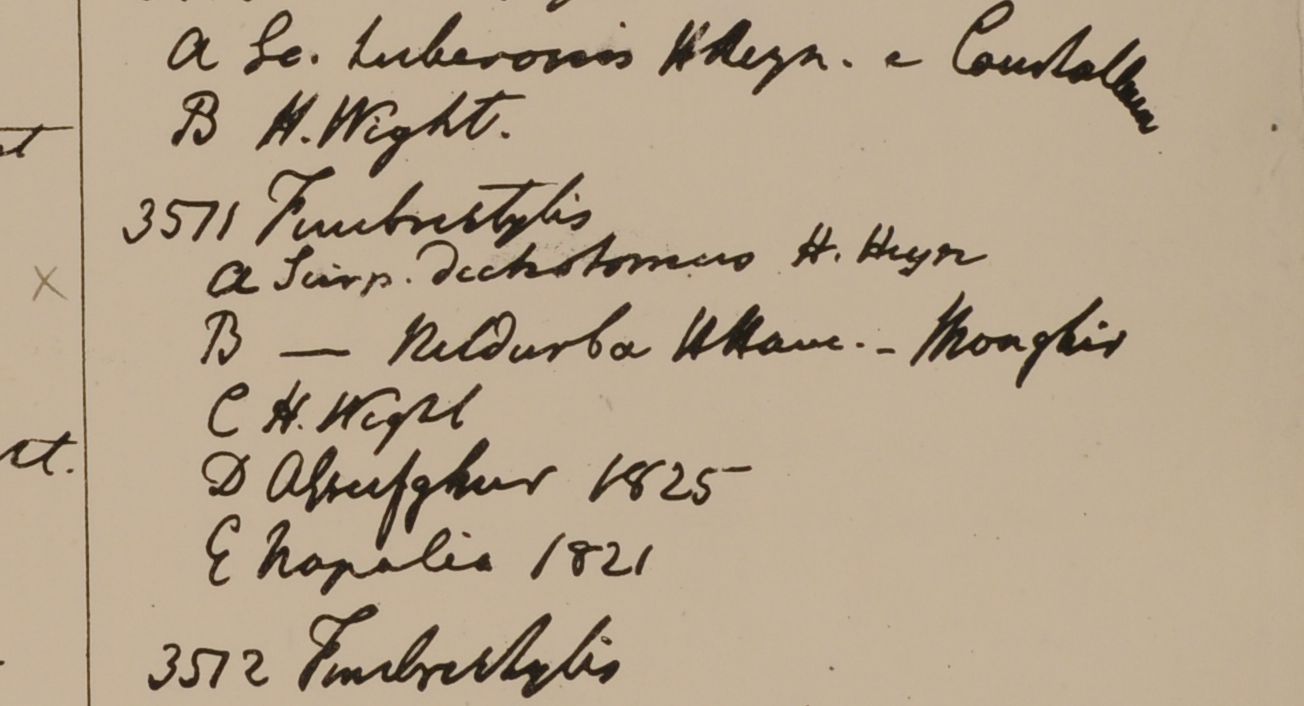 a Sc. tuberosus H Heyn. e Courtallum
B H. Wight.
3511 Fimbristylis
a Scirp. dichotomus H. Heyn
B — Neldurba H Ham. - Monghir
C H. Wight
D 1825
E Napalia 1821
3512 Fimbristylis